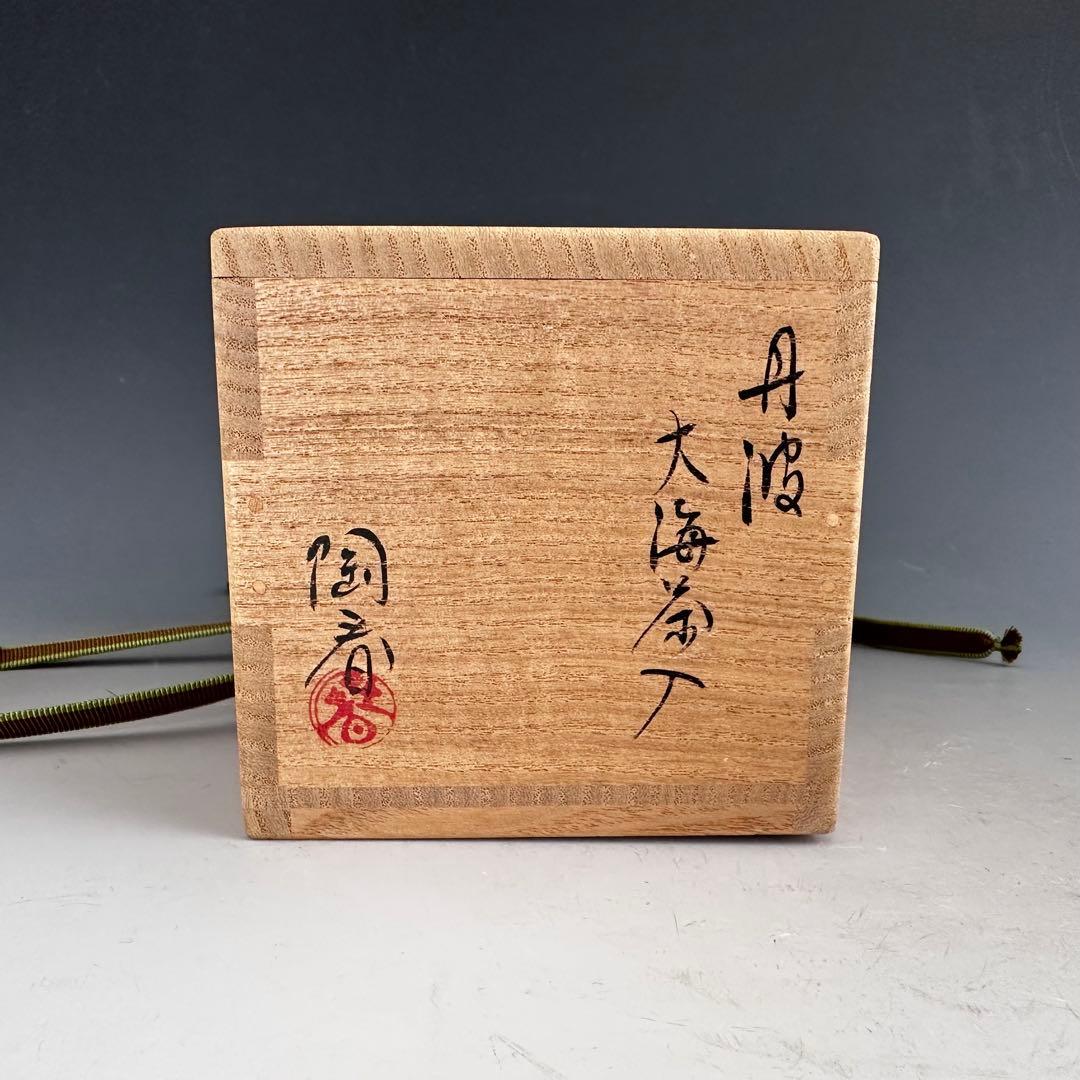 丹波
大海茶入
陶春